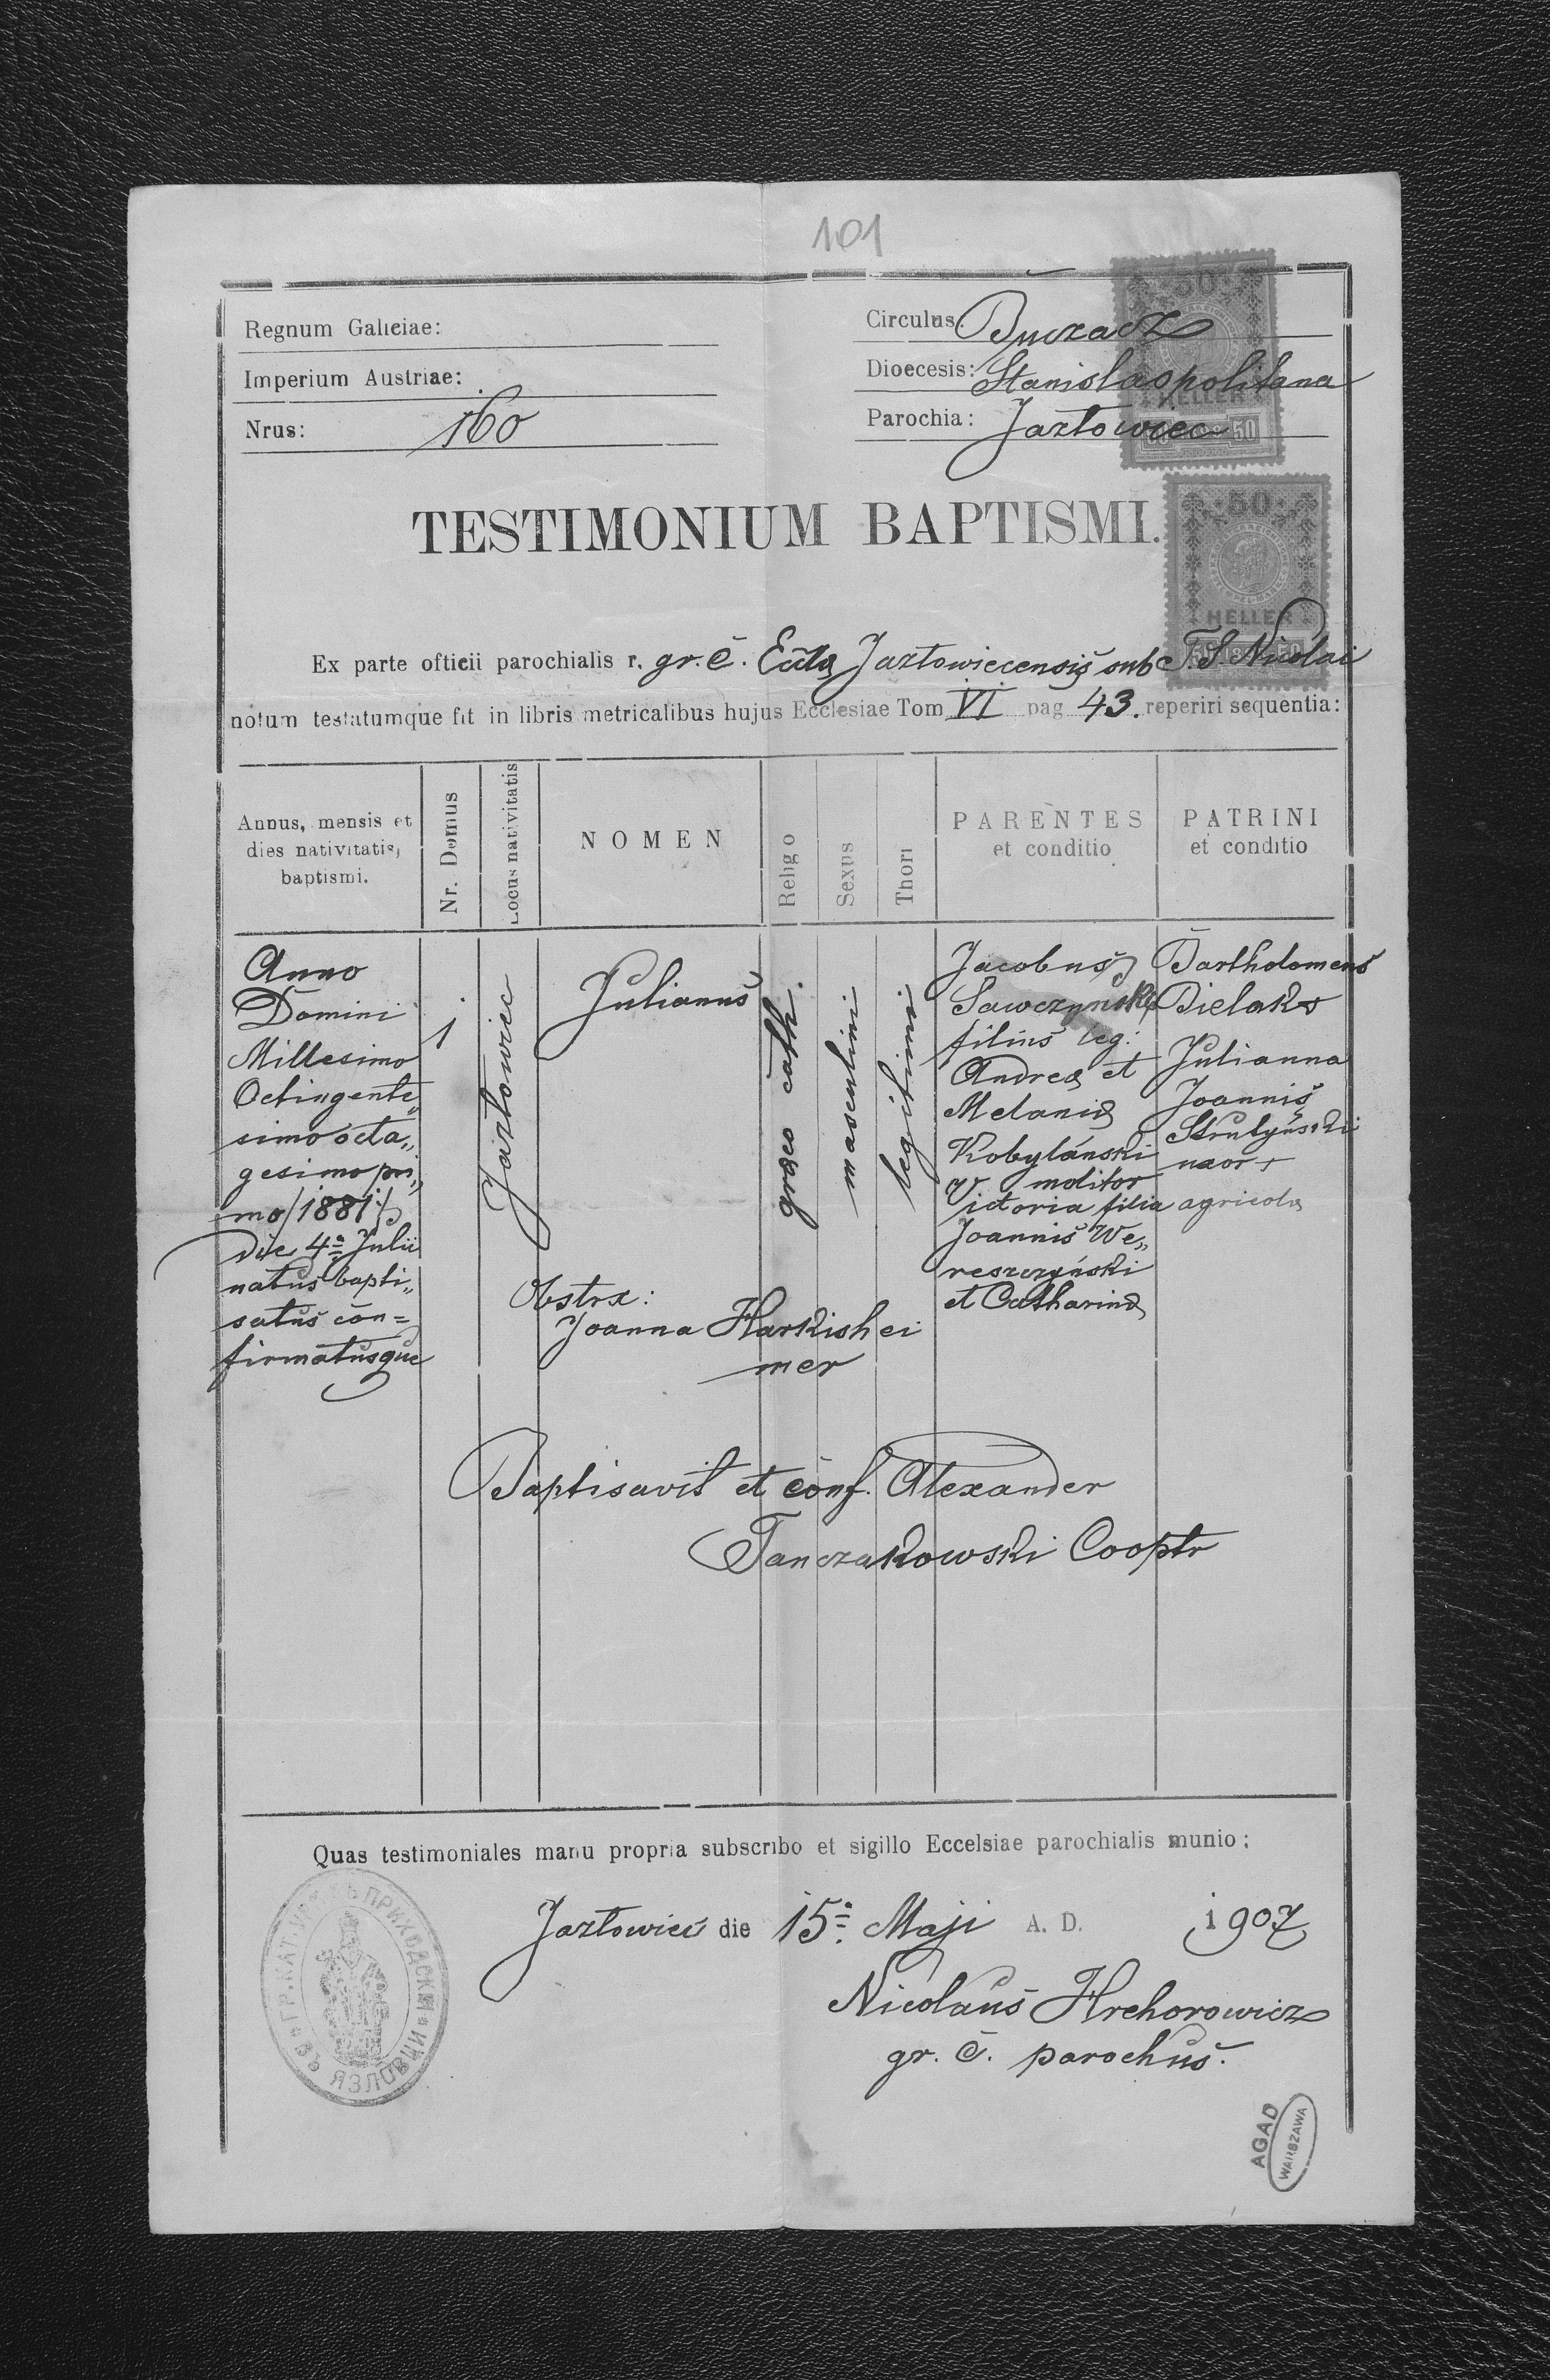 101
Regnum Galiciae:
Imperium Austriae:
Nrus: 160
Circulus: Buczacz
Dioecesis: Stanislaopolitana
Parochia: Jazłowiec
50
HELLER
50
50
HELLER
TESTIMONIUM BAPTISMI.
Ex parte officii parochialis r. gr. c. Jazłowiecensis sub T. S. Nicolai
notum testatumque fit in libris metricalibus hujus Ecclesiae Tom VI pag 43. reperiri sequentia:
Annus, mensis et
dies nativitatis,
baptismi.
Nr. Domus
Locus nativitatis
NOMEN
Religio
Sexus
Thori
PARENTES
et conditio
PATRINI
et conditio
Anno
Domini
Millesimo
Octingente„
simo octa„
gesimo pri„
mo /1881/
die 4ª Julii
natus bapti„
satus con=
firmatusque
1
Jazłowiec
Julianus
graeco cath.
masculini
legitimi
Jacobus
Sawczyński
filius leg:
Andreae et
Melaniae
Kobylánski
molitor
Victoria filia
Joannis We„
reszczyński
et Catharinae
Bartholomeus
Bielak +
Julianna
Joannis
uxor +
agricolae
Obstrx:
Joanna Harkishei
mer
Baptisavit et conf. Alexander
Tanczakowski Cooptr
Quas testimoniales manu propria subscribo et sigillo Eccelsiae parochialis munio;
Jazłowiec die 15ª Maji A. D. 1907
Nicolaus Hrehorowicz
gr. c. parochus.
ПРИХОДСКІЙ
ВЪ ЯЗЛОВЦИ
ГР. КАТ.
AGAD
WARSZAWA